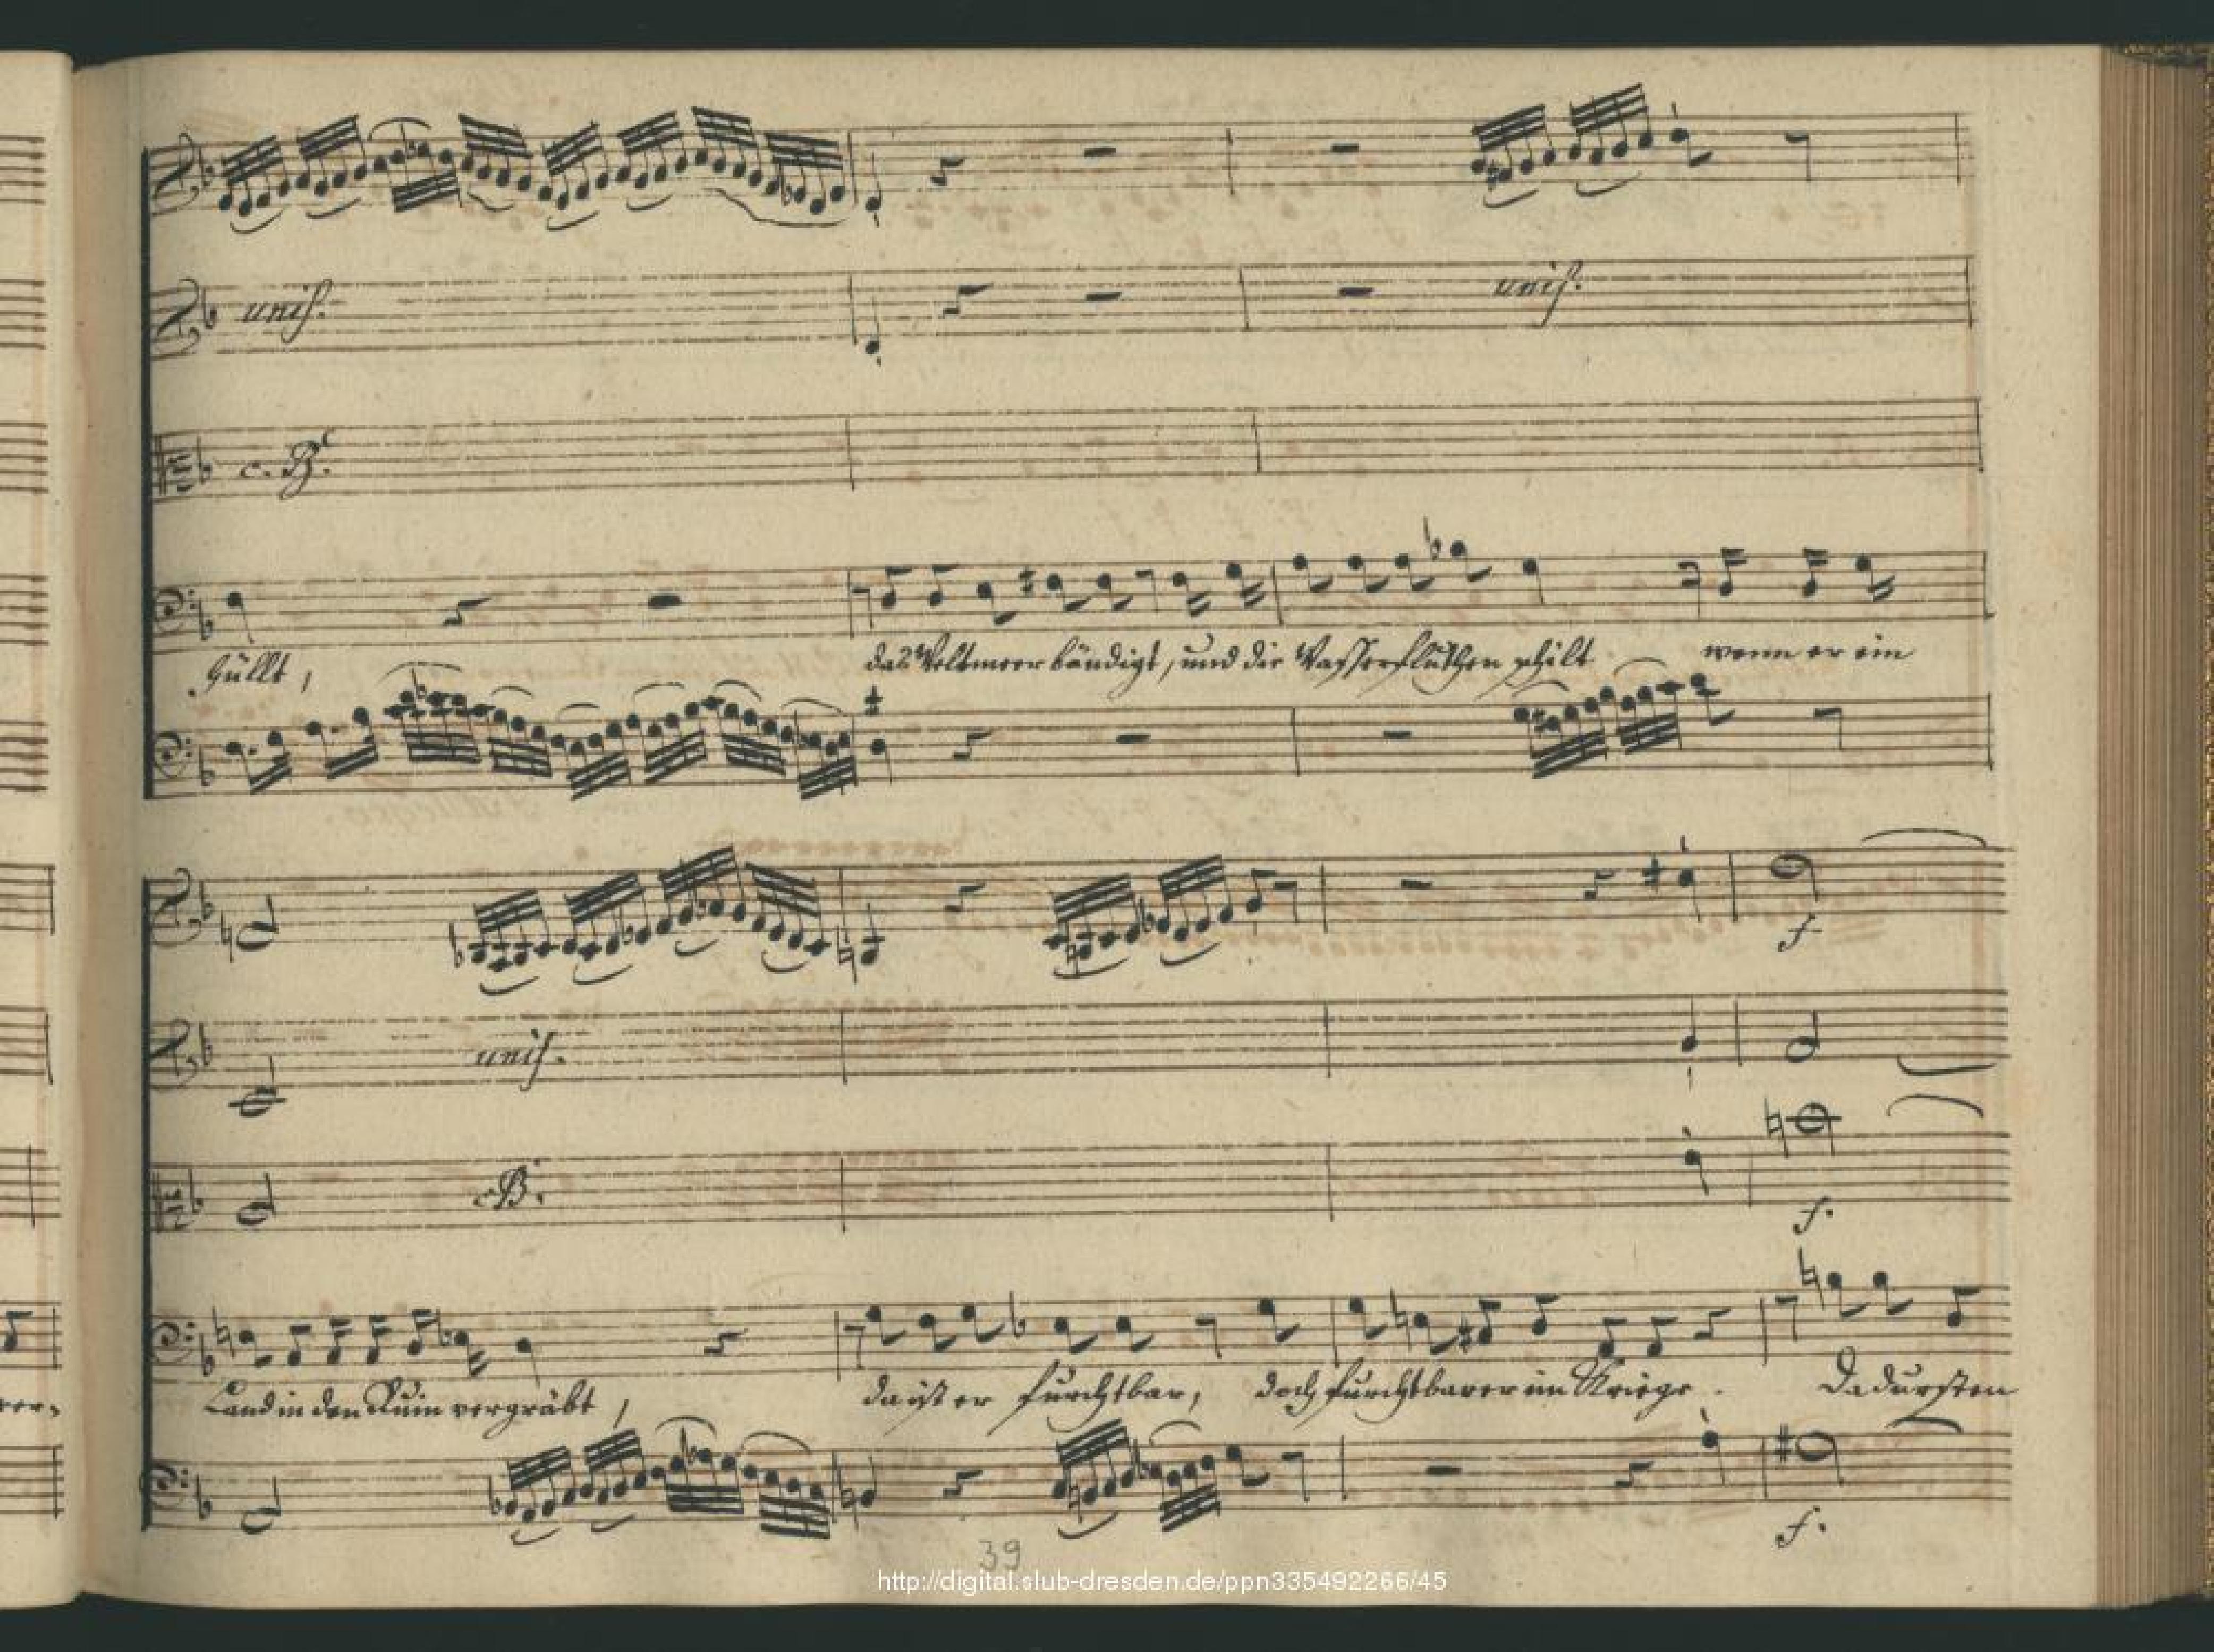 unis.
c. B.
hüllt,
das Weltmeer bändigt, und die Wasserfluthen schilt wenn er ein
unis.
unis.
cB.
f
f.
ver-
Land in den Ruin vergräbt,
da ist er furchtbar, doch furchtbarer im Kriege. Da dursten
f.
39
http://digital.slub-dresden.de/ppn335492266/45